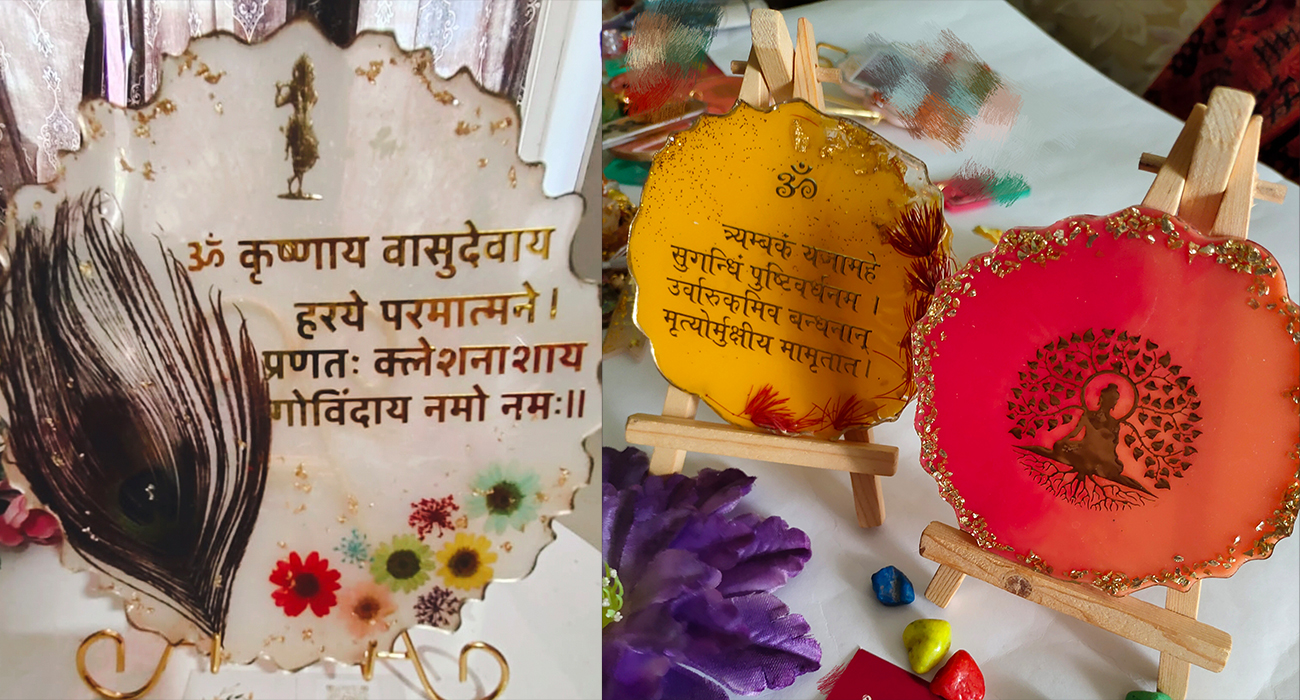 ॐ कृष्णाय वासुदेवाय
हरये परमात्मने।
प्रणतः क्लेशनाशाय
गोविंदाय नमो नमः॥
ॐ
त्र्यम्बकं यजामहे
सुगन्धिं पुष्टिवर्धनम ।
उर्वारुकमिव बन्धनान्
मृत्योर्मुक्षीय मामृतात।